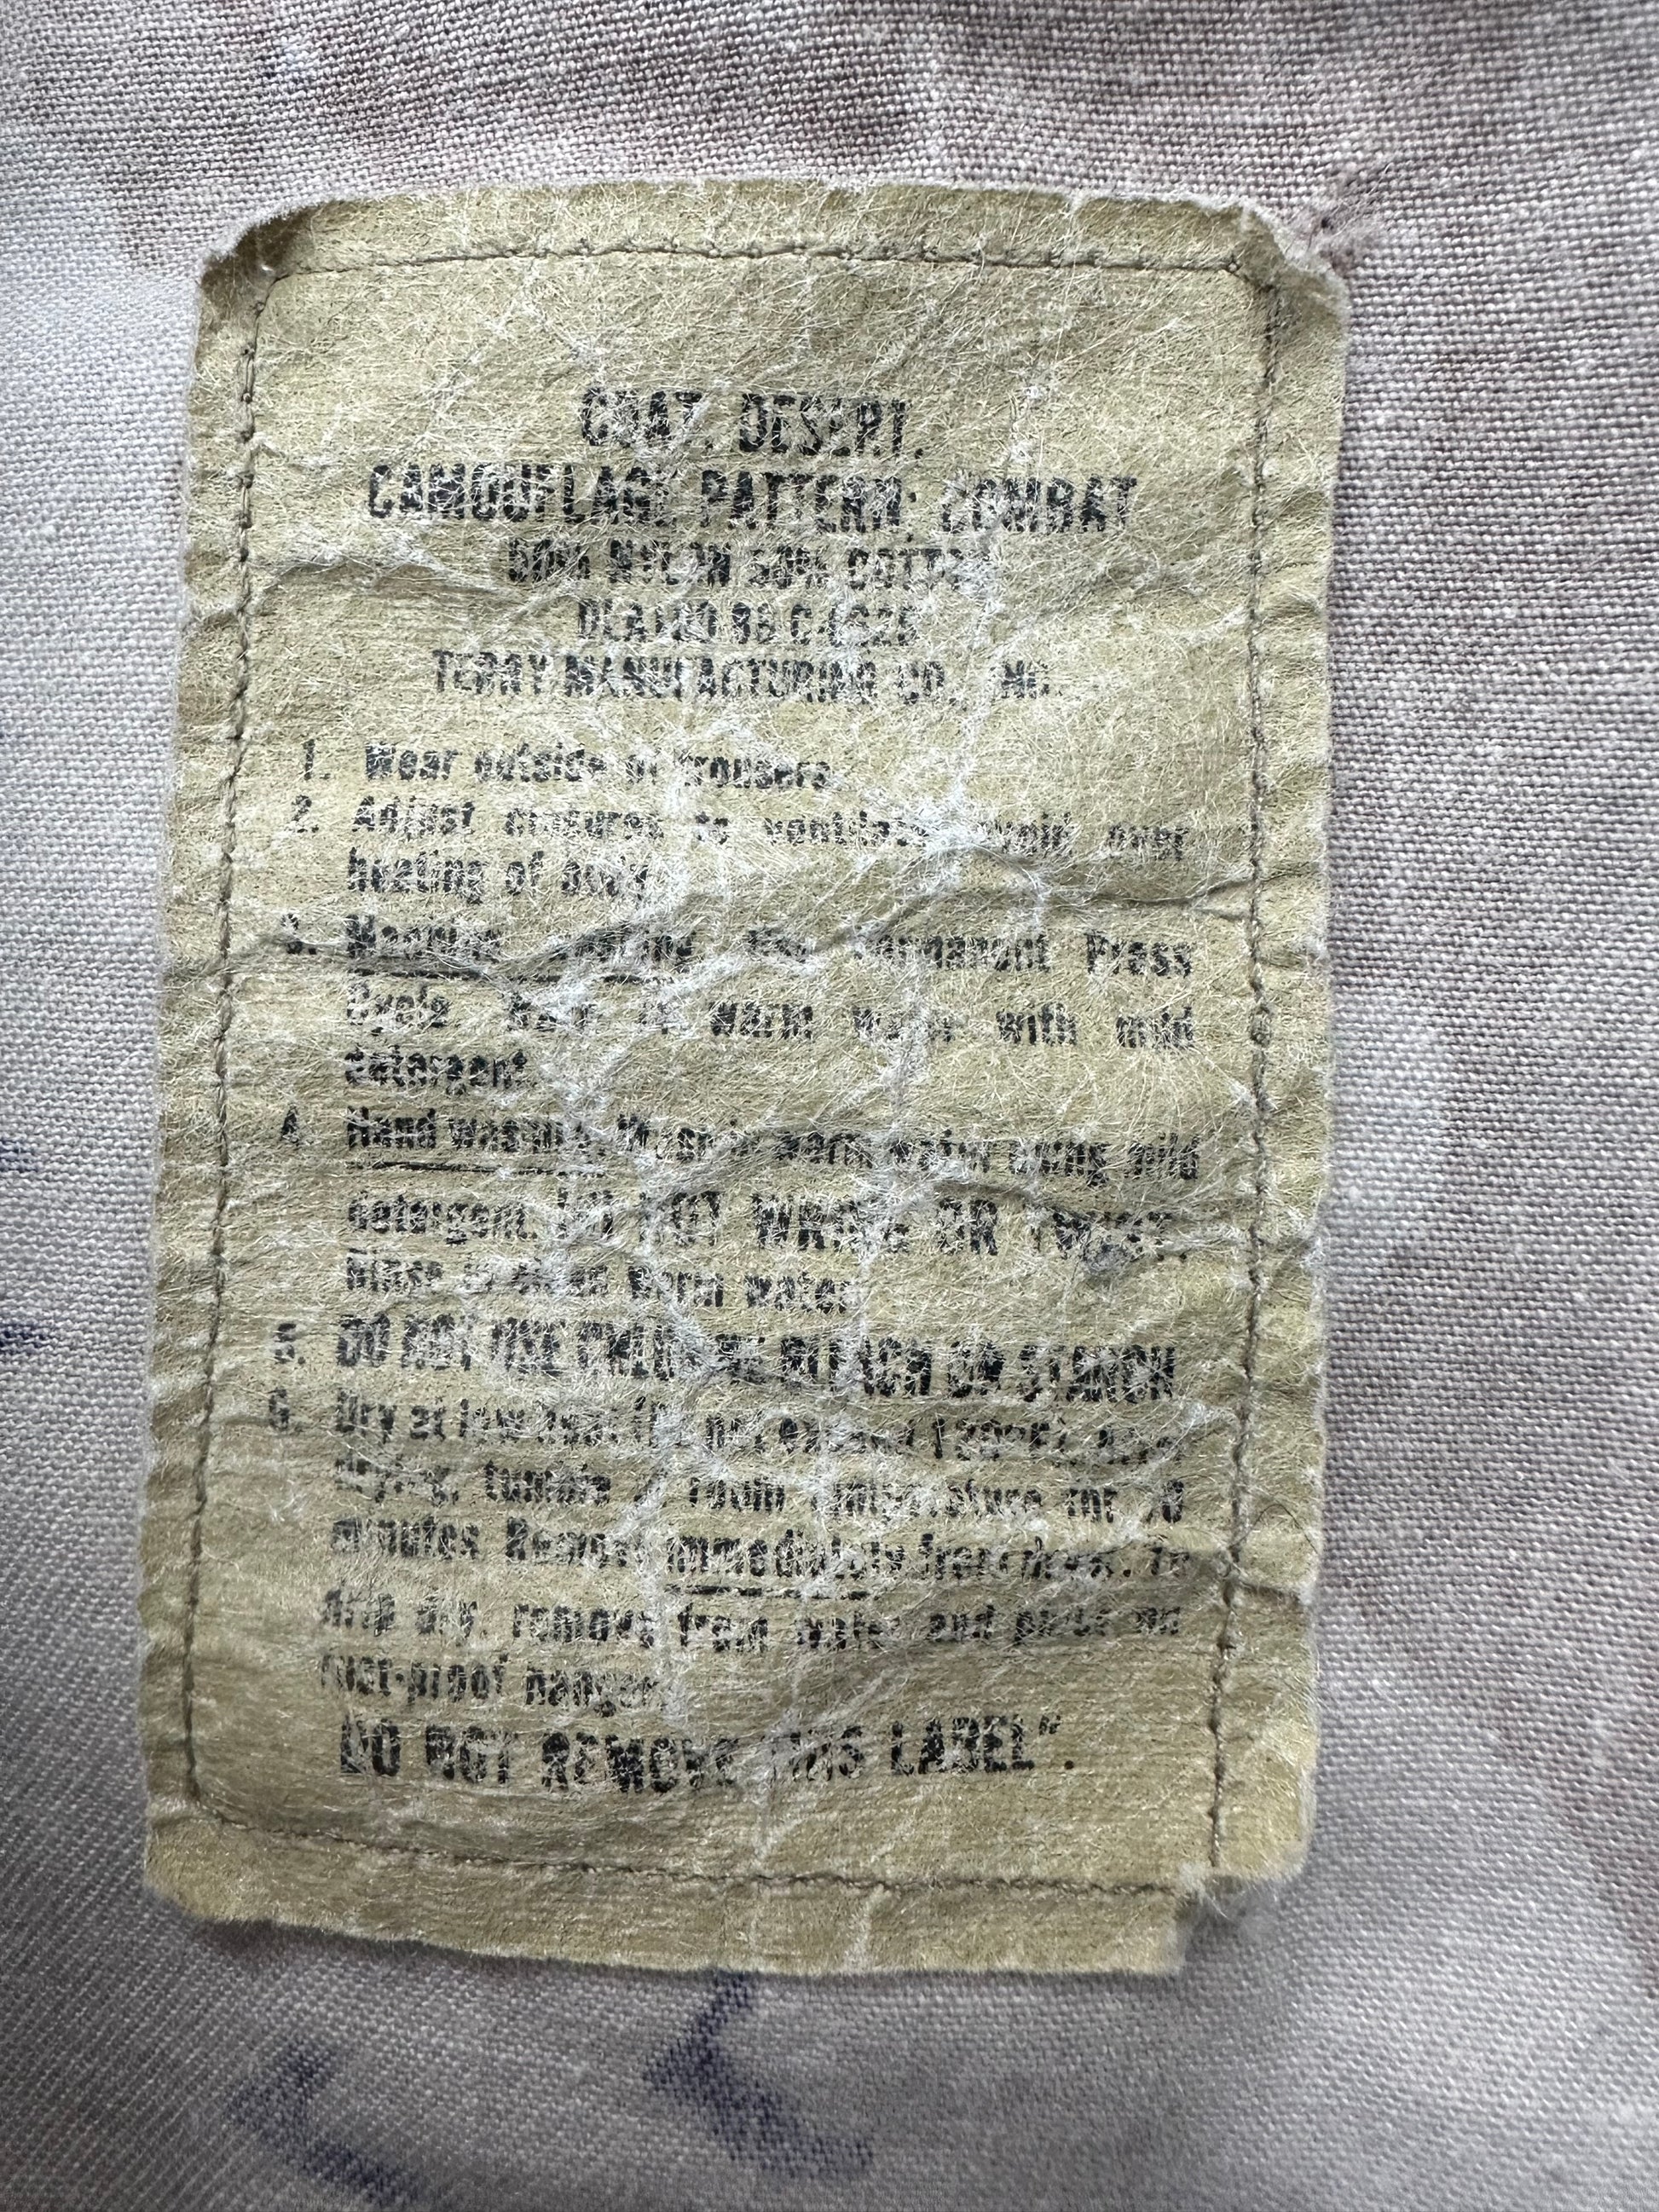 COAT, DESERT,
CAMOUFLAGE PATTERN: COMBAT
50% NYLON 50% COTTON
TERRY MANUFACTURING CO., INC.
1. Wear outside of trousers.
2. Adjust closures to ventilate, avoid over
heating of body.
3. Machine washing, use Permanent Press
Cycle. Wash in warm water with mild
detergent.
4. Hand washing. Wash in warm water using mild
detergent. DO NOT WRING OR TWIST.
Rinse in clean warm water.
5. DO NOT USE CHLORINE BLEACH OR STARCH
6. Dry at low heat (do not exceed 130°F). After
drying, tumble at room temperature for 10
minutes. Remove immediately from dryer. To
drip dry, remove from water and place on
rust-proof hanger.
DO NOT REMOVE THIS LABEL".